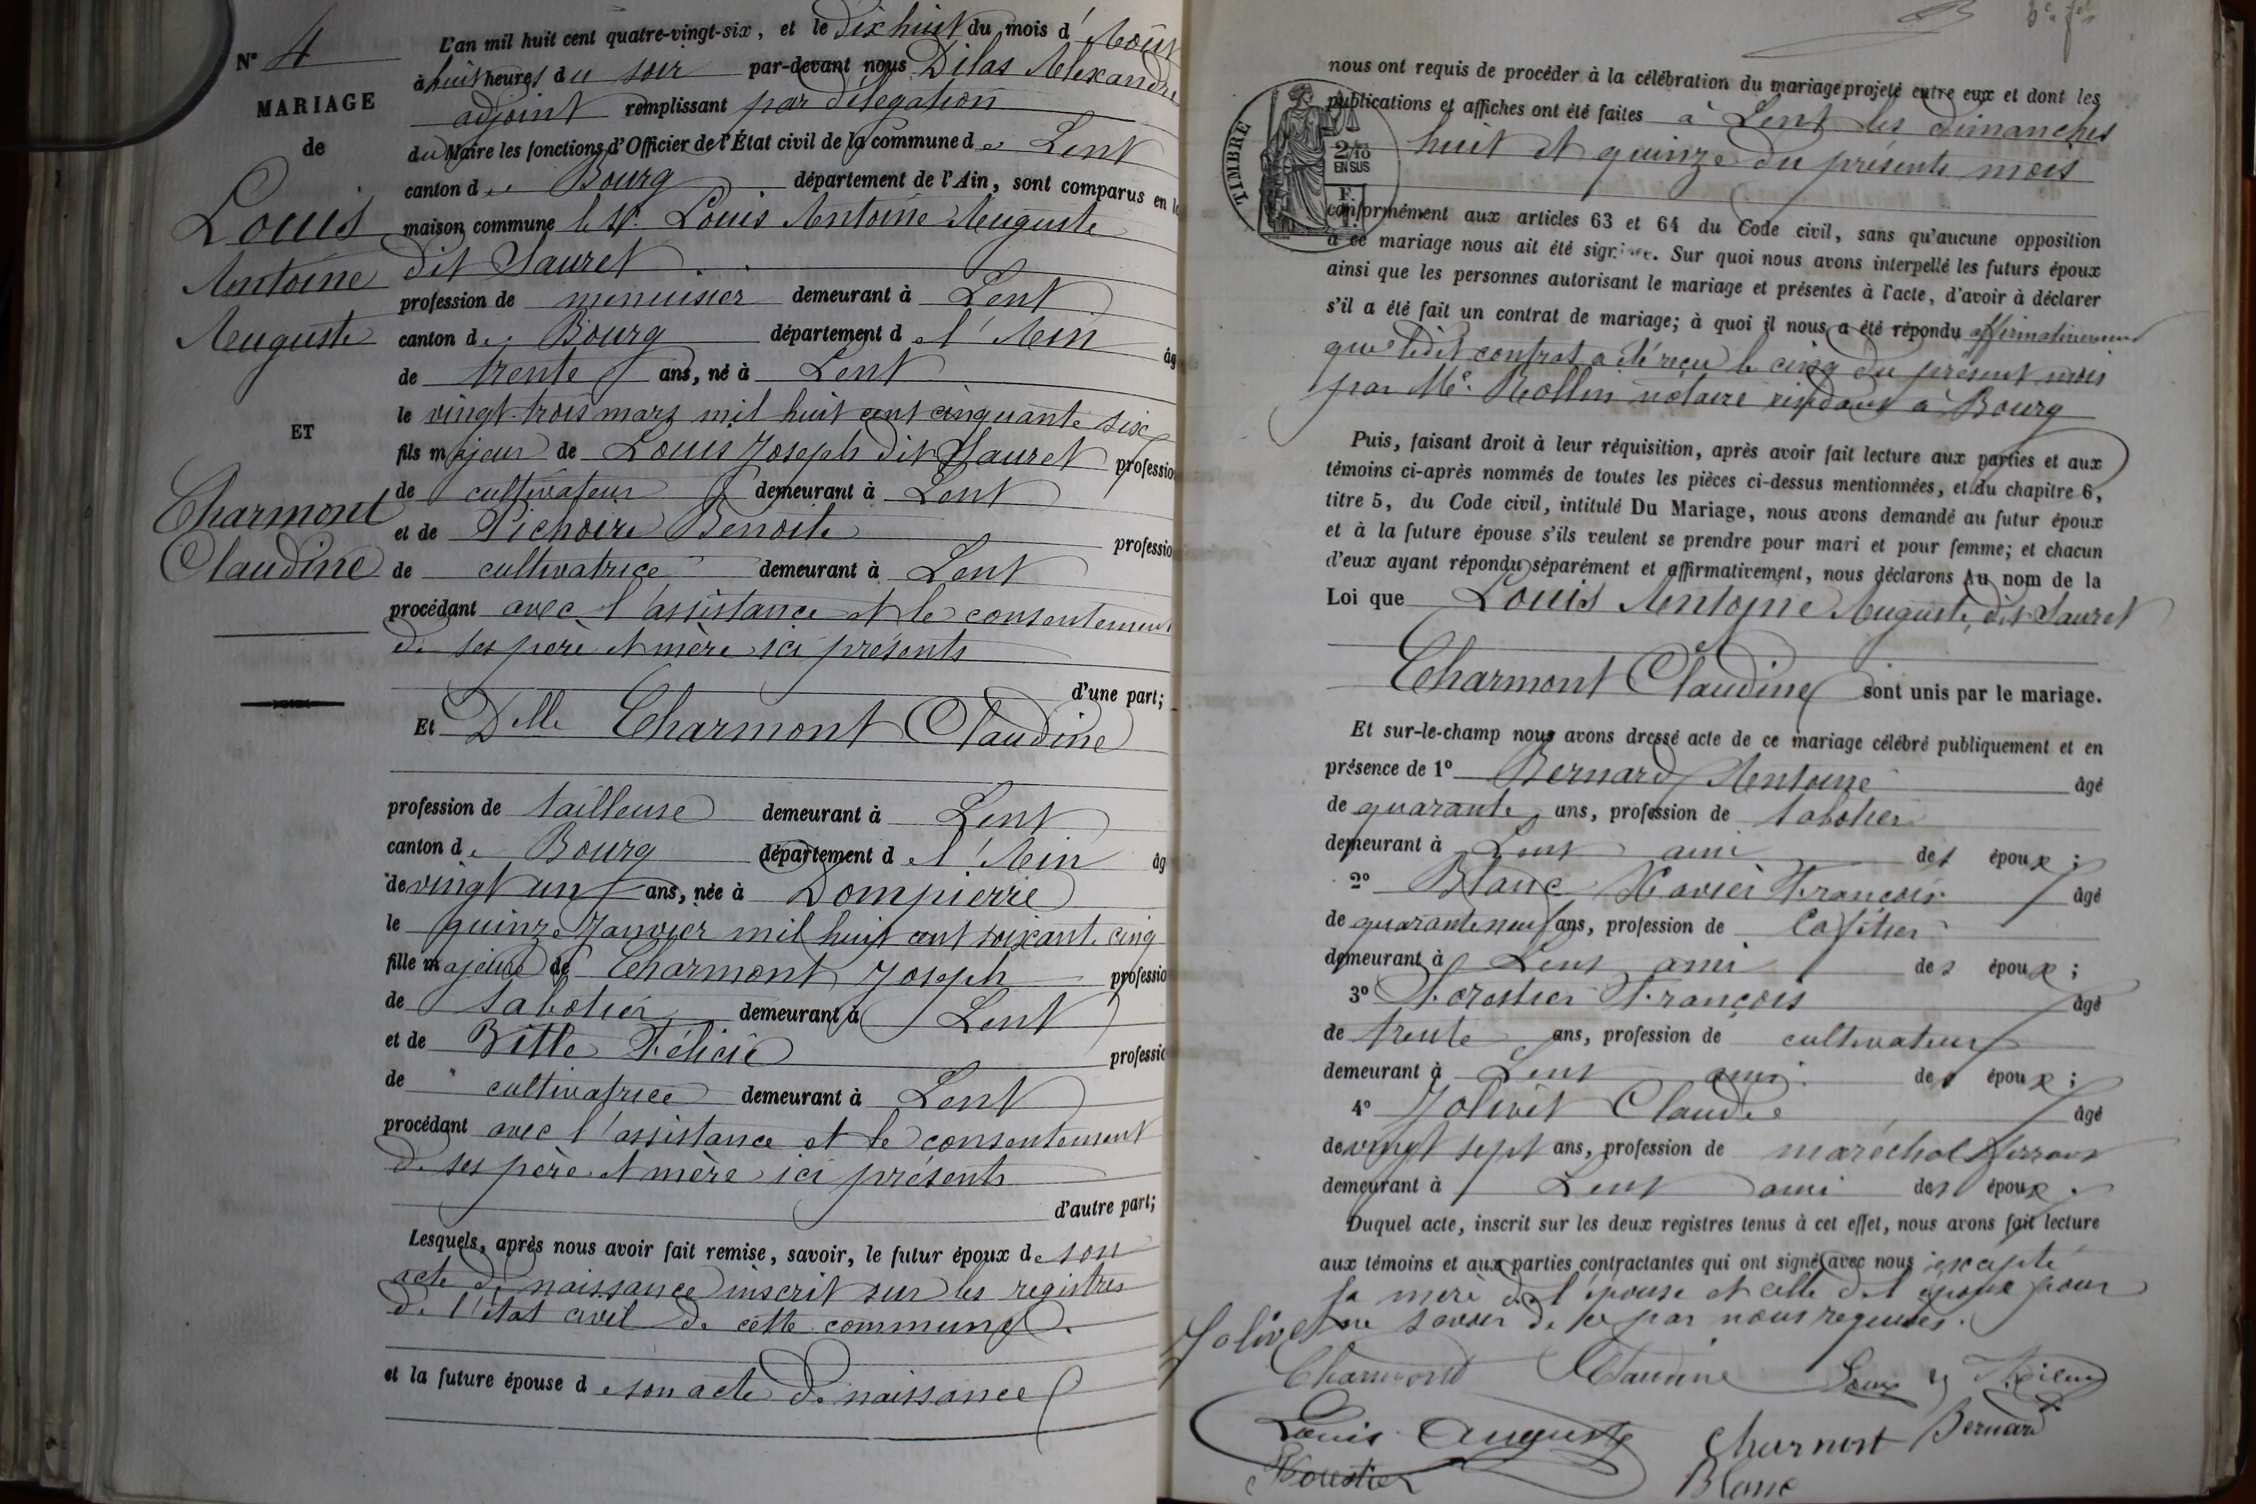 N° 4
MARIAGE
de
Louis
Antoine
Auguste
ET
Charmont
Claudine
L'an mil huit cent quatre-vingt-six, et le dix huit du mois d'Août
à huit heures du soir par-devant nous Dilas Alexandre
adjoint remplissant par délégation
du Maire les fonctions d'Officier de l'État civil de la commune de Lent
canton de Bourg département de l'Ain, sont comparus en la
maison commune le Sr. Louis Antoine Auguste
dit Sauret
profession de menuisier demeurant à Lent
canton de Bourg département de l'Ain âg
de trente ans, né à Lent
le vingt-trois mars mil huit cent cinquante six
fils majeur de Louis Joseph dit Sauret professio
de cultivateur demeurant à Lent
et de Pichoire Benoite professio
de cultivatrice demeurant à Lent
procédant avec l'assistance et le consentement
de ses père et mère ici présents
d'une part;
Et Delle Charmont Claudine
profession de tailleuse demeurant à Lent
canton de Bourg département de l'Ain âg
de vingt un ans, née à Dompierre
le quinze Janvier mil huit cent soixante cinq
fille majeure de Charmont Joseph professio
de sabotier demeurant à Lent
et de Bitte Félicie professio
de cultivatrice demeurant à Lent
procédant avec l'assistance et le consentement
de ses père et mère ici présents
d'autre part;
Lesquels, après nous avoir fait remise, savoir, le futur époux de son
acte de naissance inscrit sur les registres
de l'état civil de cette commune.
et la future épouse de son acte de naissance
TIMBRE
2/10
EN SUS
nous ont requis de procéder à la célébration du mariage projeté entre eux et dont les
publications et affiches ont été faites à Lent les dimanches
huit et quinze du présents mois
conformément aux articles 63 et 64 du Code civil, sans qu'aucune opposition
à ce mariage nous ait été signifiée. Sur quoi nous avons interpellé les futurs époux
ainsi que les personnes autorisant le mariage et présentes à l'acte, d'avoir à déclarer
s'il a été fait un contrat de mariage; à quoi il nous a été répondu affirmativement
que ledit contrat a été reçu le cinq du présent mois
par Me. Rollin notaire résidant à Bourg
Puis, faisant droit à leur réquisition, après avoir fait lecture aux parties et aux
témoins ci-après nommés de toutes les pièces ci-dessus mentionnées, et du chapitre 6,
titre 5, du Code civil, intitulé Du Mariage, nous avons demandé au futur époux
et à la future épouse s'ils veulent se prendre pour mari et pour femme; et chacun
d'eux ayant répondu séparément et affirmativement, nous déclarons Au nom de la
Loi que Louis Antoine Auguste, dit Sauret
et
Charmont Claudine sont unis par le mariage.
Et sur-le-champ nous avons dressé acte de ce mariage célébré publiquement et en
présence de 1° Bernard Antoine âgé
de quarante ans, profession de sabotier
demeurant à Lent ami des époux;
2° Blanc Xavier François âgé
de quarante neuf ans, profession de Cafetier
demeurant à Lent ami des époux;
3° Forestier François âgé
de trente ans, profession de cultivateur
demeurant à Lent ami des époux;
4° Jolivet Claude âgé
de vingt sept ans, profession de maréchal ferrant
demeurant à Lent ami des époux.
Duquel acte, inscrit sur les deux registres tenus à cet effet, nous avons fait lecture
aux témoins et aux parties contractantes qui ont signé avec nous excepté
la mère de l'épouse et celle de l'époux pour
ne savoir de ce par nous requises.
Jolivet
Charmont Claudine Louis
Louis Auguste Charmont Bernard
Forestier Blanc